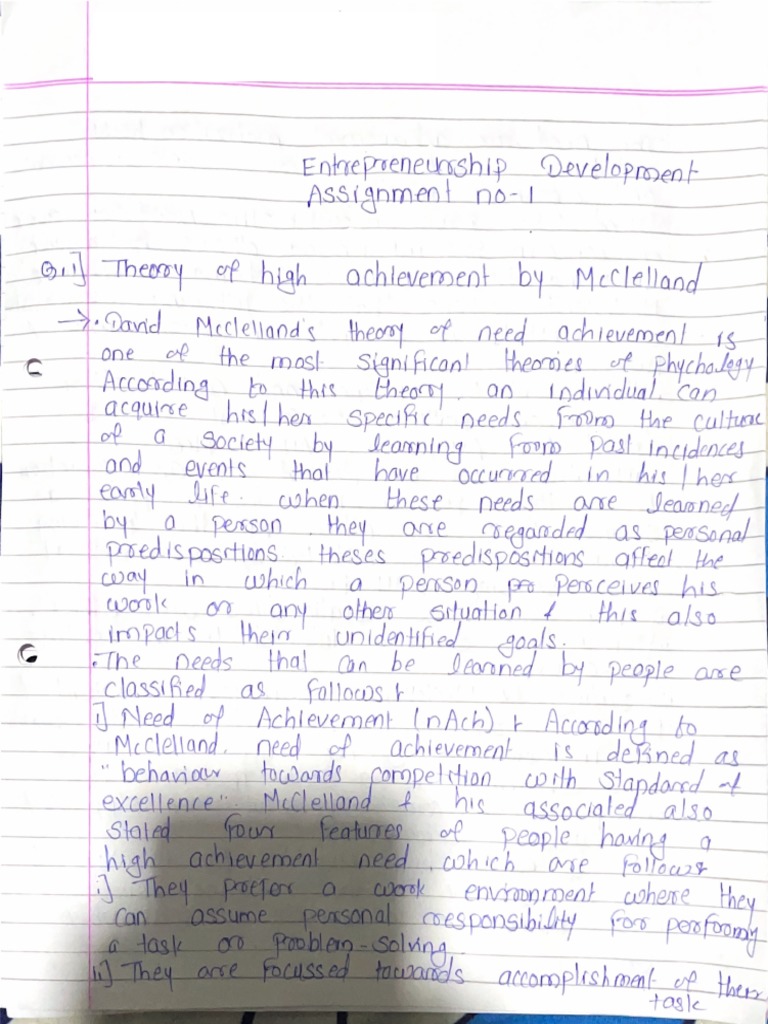 Entrepreneurship Development
Assignment no-1
Q.1] Theory of high achievement by McClelland
→ • David Mcclelland's theory of need achievement is
one of the most significant theories of phychology
According to this theory an individual can
acquire his/her specific needs from the culture
of a society by learning from past incidences
and events that have occurred in his/her
early life. when these needs are learned
by a person they are regarded as personal
predispositions. theses predispositions affect the
way in which a person pr perceives his
work or any other situation & this also
impacts their unidentified goals.
• The needs that can be learned by people are
classified as follows :
i] Need of Achievement (nAch) : According to
McClelland, need of achievement is defined as
"behaviour towards competition with standard of
excellence". McClelland & his associated also
stated four features of people having a
high achievement need, which are follows :
i] They prefer a work environment where they
can assume personal responsibility for performing
a task or problem-solving.
ii] They are focussed towards accomplishment of their
task